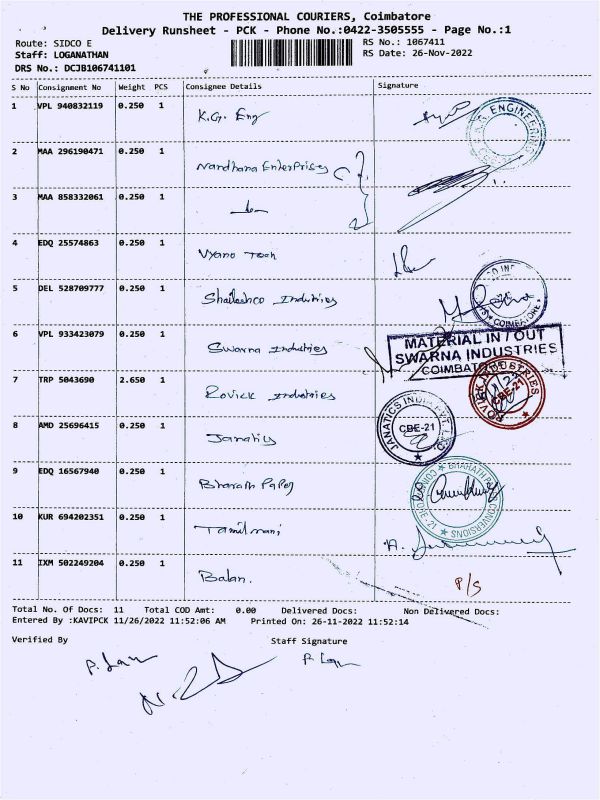 THE PROFESSIONAL COURIERS, Coimbatore
Delivery Runsheet - PCK - Phone No.:0422-3505555 - Page No.:1
Route: SIDCO E RS No.: 1067411
Staff: LOGANATHAN RS Date: 26-Nov-2022
DRS No.: DCJB106741101
S No Consignment No Weight PCS Consignee Details Signature
1 VPL 940832119 0.250 1 K.G. Eng
ENGINEERING
2 MAA 296190471 0.250 1 Nandhana Enterprises
3 MAA 858332061 0.250 1
4 EDQ 25574863 0.250 1 Vyano Tech
5 DEL 528709777 0.250 1 Shaileshco Industries
COIMBATORE
6 VPL 933423079 0.250 1 Swarna Industries
MATERIAL IN / OUT
SWARNA INDUSTRIES
COIMBATORE
7 TRP 5043690 2.650 1 Rovick Industries
CBE-21
8 AMD 25696415 0.250 1 Janatics
JANATICS INDIA PVT. LTD.
CBE-21
9 EDQ 16567940 0.250 1 Bharath Paper
BHARATH PAPER CONVERSIONS
10 KUR 694202351 0.250 1 Tamilmani
11 IXM 502249204 0.250 1 Balan.
P/S
Total No. Of Docs: 11 Total COD Amt: 0.00 Delivered Docs: Non Delivered Docs:
Entered By :KAVIPCK 11/26/2022 11:52:06 AM Printed On: 26-11-2022 11:52:14
Verified By Staff Signature